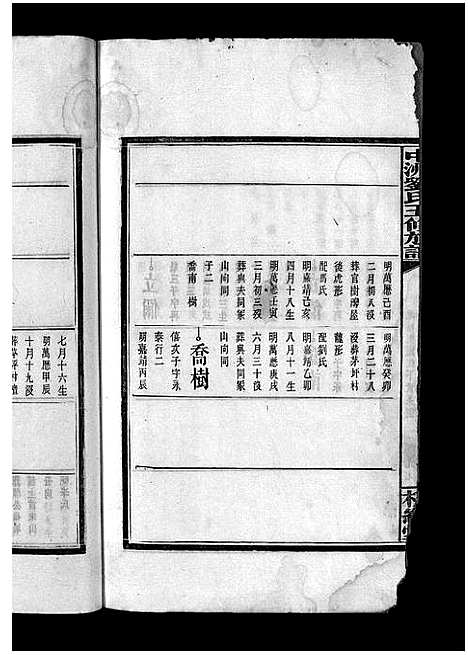 明萬厯己酉
二月初八沒
葬官樹牌屋
後虎形
配馬氏
明嘉靖己亥
四月十八生
明萬厯壬寅
三月初三沒
葬與夫同冢
山向同
子二
喬南
喬樹
明萬厯癸卯
三月二十八
沒葬茅坪村
龍形
配劉氏
明嘉靖乙卯
八月十一生
明萬厯庚戌
六月三十沒
葬與夫同冢
山向同
喬樹
倍次子字永
泰行二
明嘉靖丙辰
七月十六生
明萬厯甲辰
十月十九沒